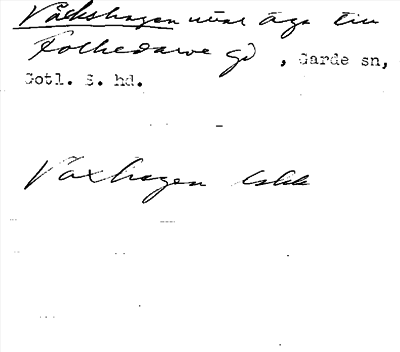 Våckshagen utvat äga till
Folkedarve gd, Garde sn,
Gotl. S. hd.
Vaxhagen